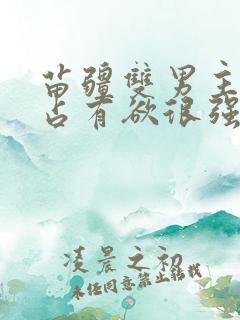 苗疆雙男主
占有欲很强
凌晨之初
未经同意禁止转载